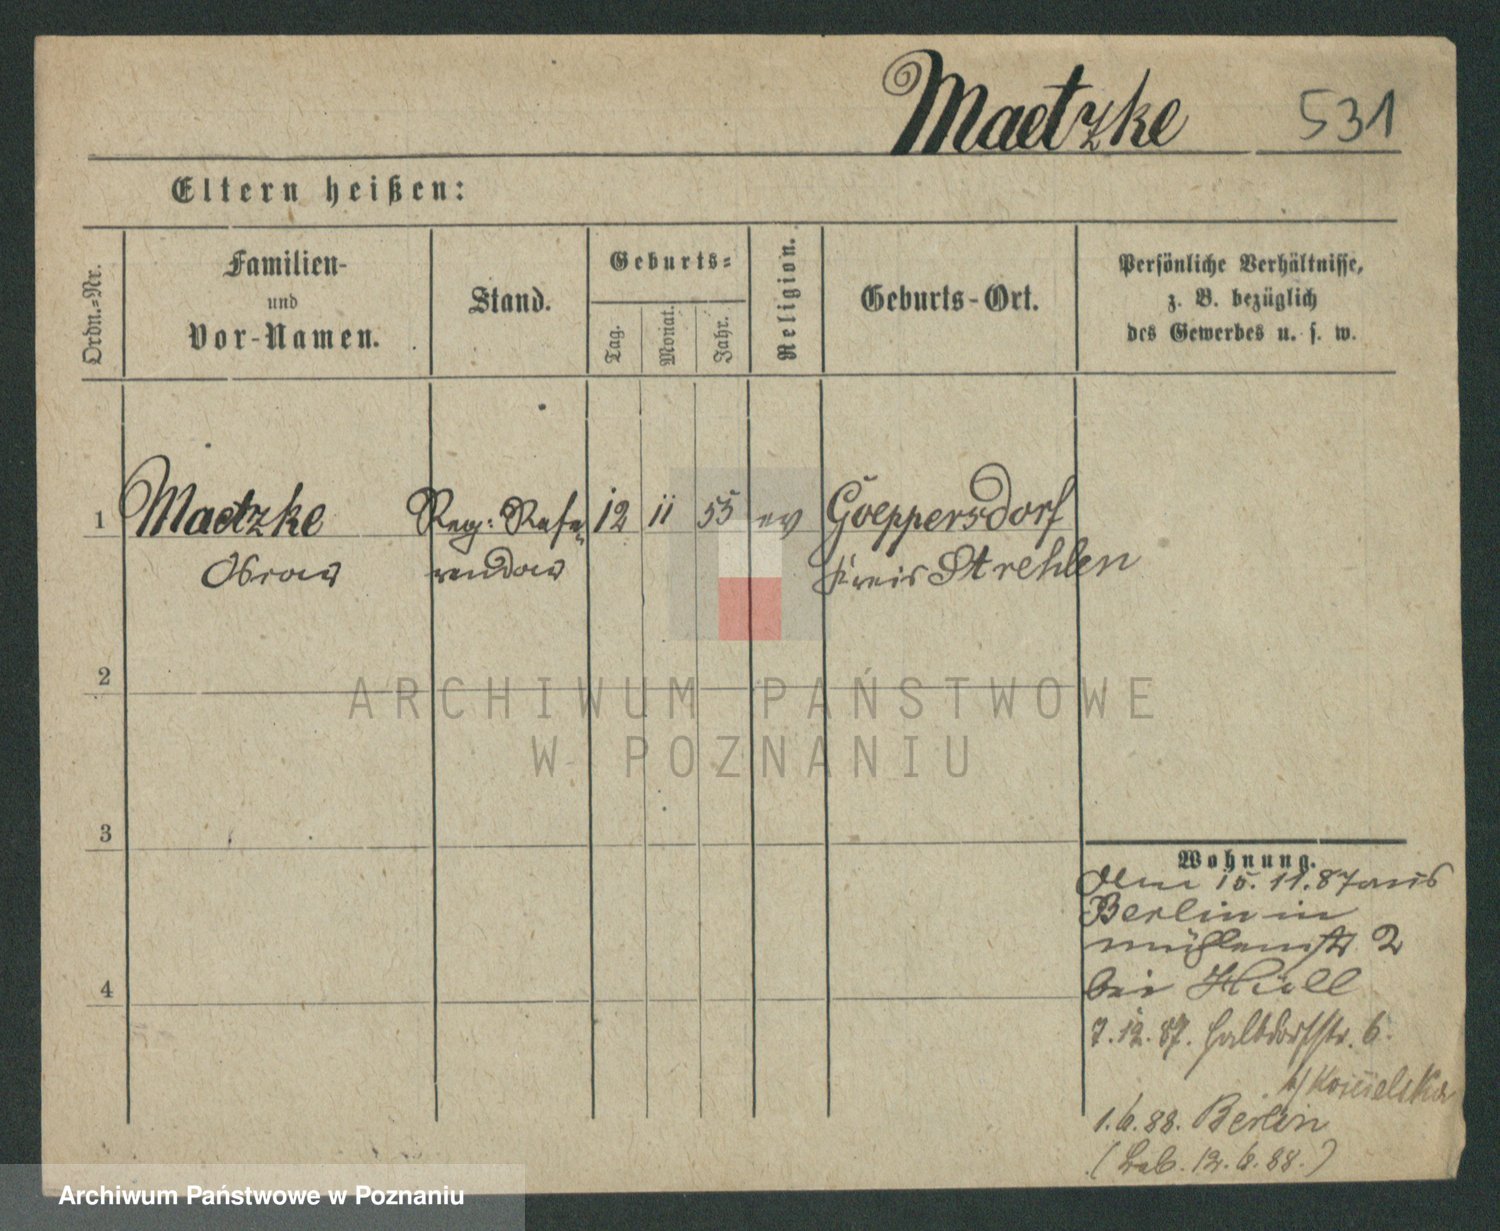 Maetzke 531
Eltern heißen:
Ordn.-Nr.
Familien-
und
Vor-Namen.
Stand.
Geburts-
Tag.
Monat.
Jahr.
Religion.
Geburts-Ort.
Persönliche Verhältnisse,
z. B. bezüglich
des Gewerbes u. s. w.
1 Maetzke Reg: Refe- 12 11 55 ev Goeppersdorf
rendar Kreis Strehlen
2
ARCHIWUM PAŃSTWOWE
W POZNANIU
3
4
Wohnung.
15.11.87 aus
Berlin in
mühlenstr 2
bei Hüll
7.12.87. Halbdorfstr. 6.
1.6.88. Berlin
12.6.88.)
Archiwum Państwowe w Poznaniu